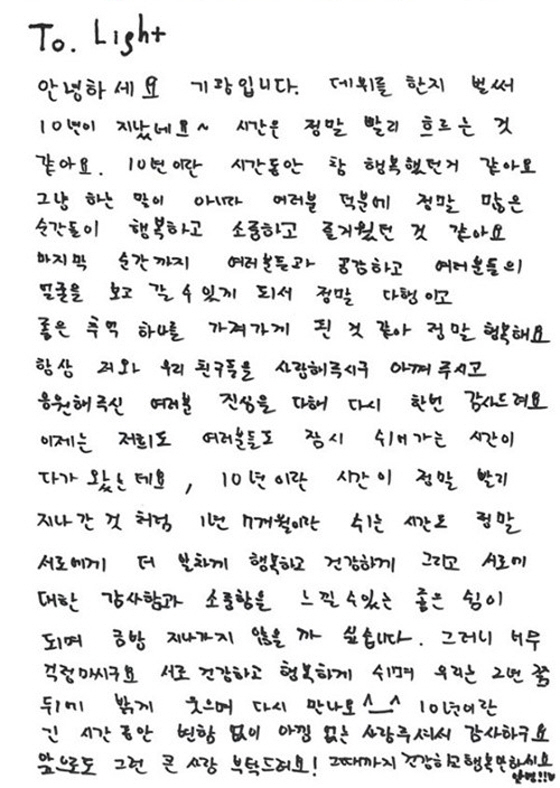 To. Light
안녕하세요 기광입니다. 데뷔를 한지 벌써
10년이 지났네요~ 시간은 정말 빨리 흐르는 것
같아요. 10년이란 시간동안 참 행복했던거 같아요
그냥 하는 말이 아니라 여러분 덕분에 정말 많은
순간들이 행복하고 소중하고 즐거웠던 것 같아요
마지막 순간까지 여러분들과 공감하고 여러분들의
얼굴을 보고 갈 수 있게 되서 정말 다행이고
좋은 추억 하나를 가져가게 된 것 같아 정말 행복해요
항상 저와 우리 친구들을 사랑해주시구 아껴 주시고
응원해주신 여러분 진심을 다해 다시 한번 감사드려요
이제는 저희도 여러분들도 잠시 쉬어가는 시간이
다가 왔는데요, 10년이란 시간이 정말 빨리
지나간 것 처럼 1년 7개월이란 쉬는 시간도 정말
서로에게 더 알차게 행복하고 건강하게 그리고 서로에
대한 감사함과 소중함을 느낄 수있는 좋은 쉼이
되며 금방 지나가지 않을 까 싶습니다. 그러니 너무
걱정마시구요 서로 건강하고 행복하게 쉬며 우리는 2년 쫌
뒤에 밝게 웃으며 다시 만나요^__^ 10년이란
긴 시간동안 변함 없이 아낌 없는 사랑주셔서 감사하구요
앞으로도 그런 큰 사랑 부탁드려요! 그때까지 건강하고행복만하시요
안녕!!♡